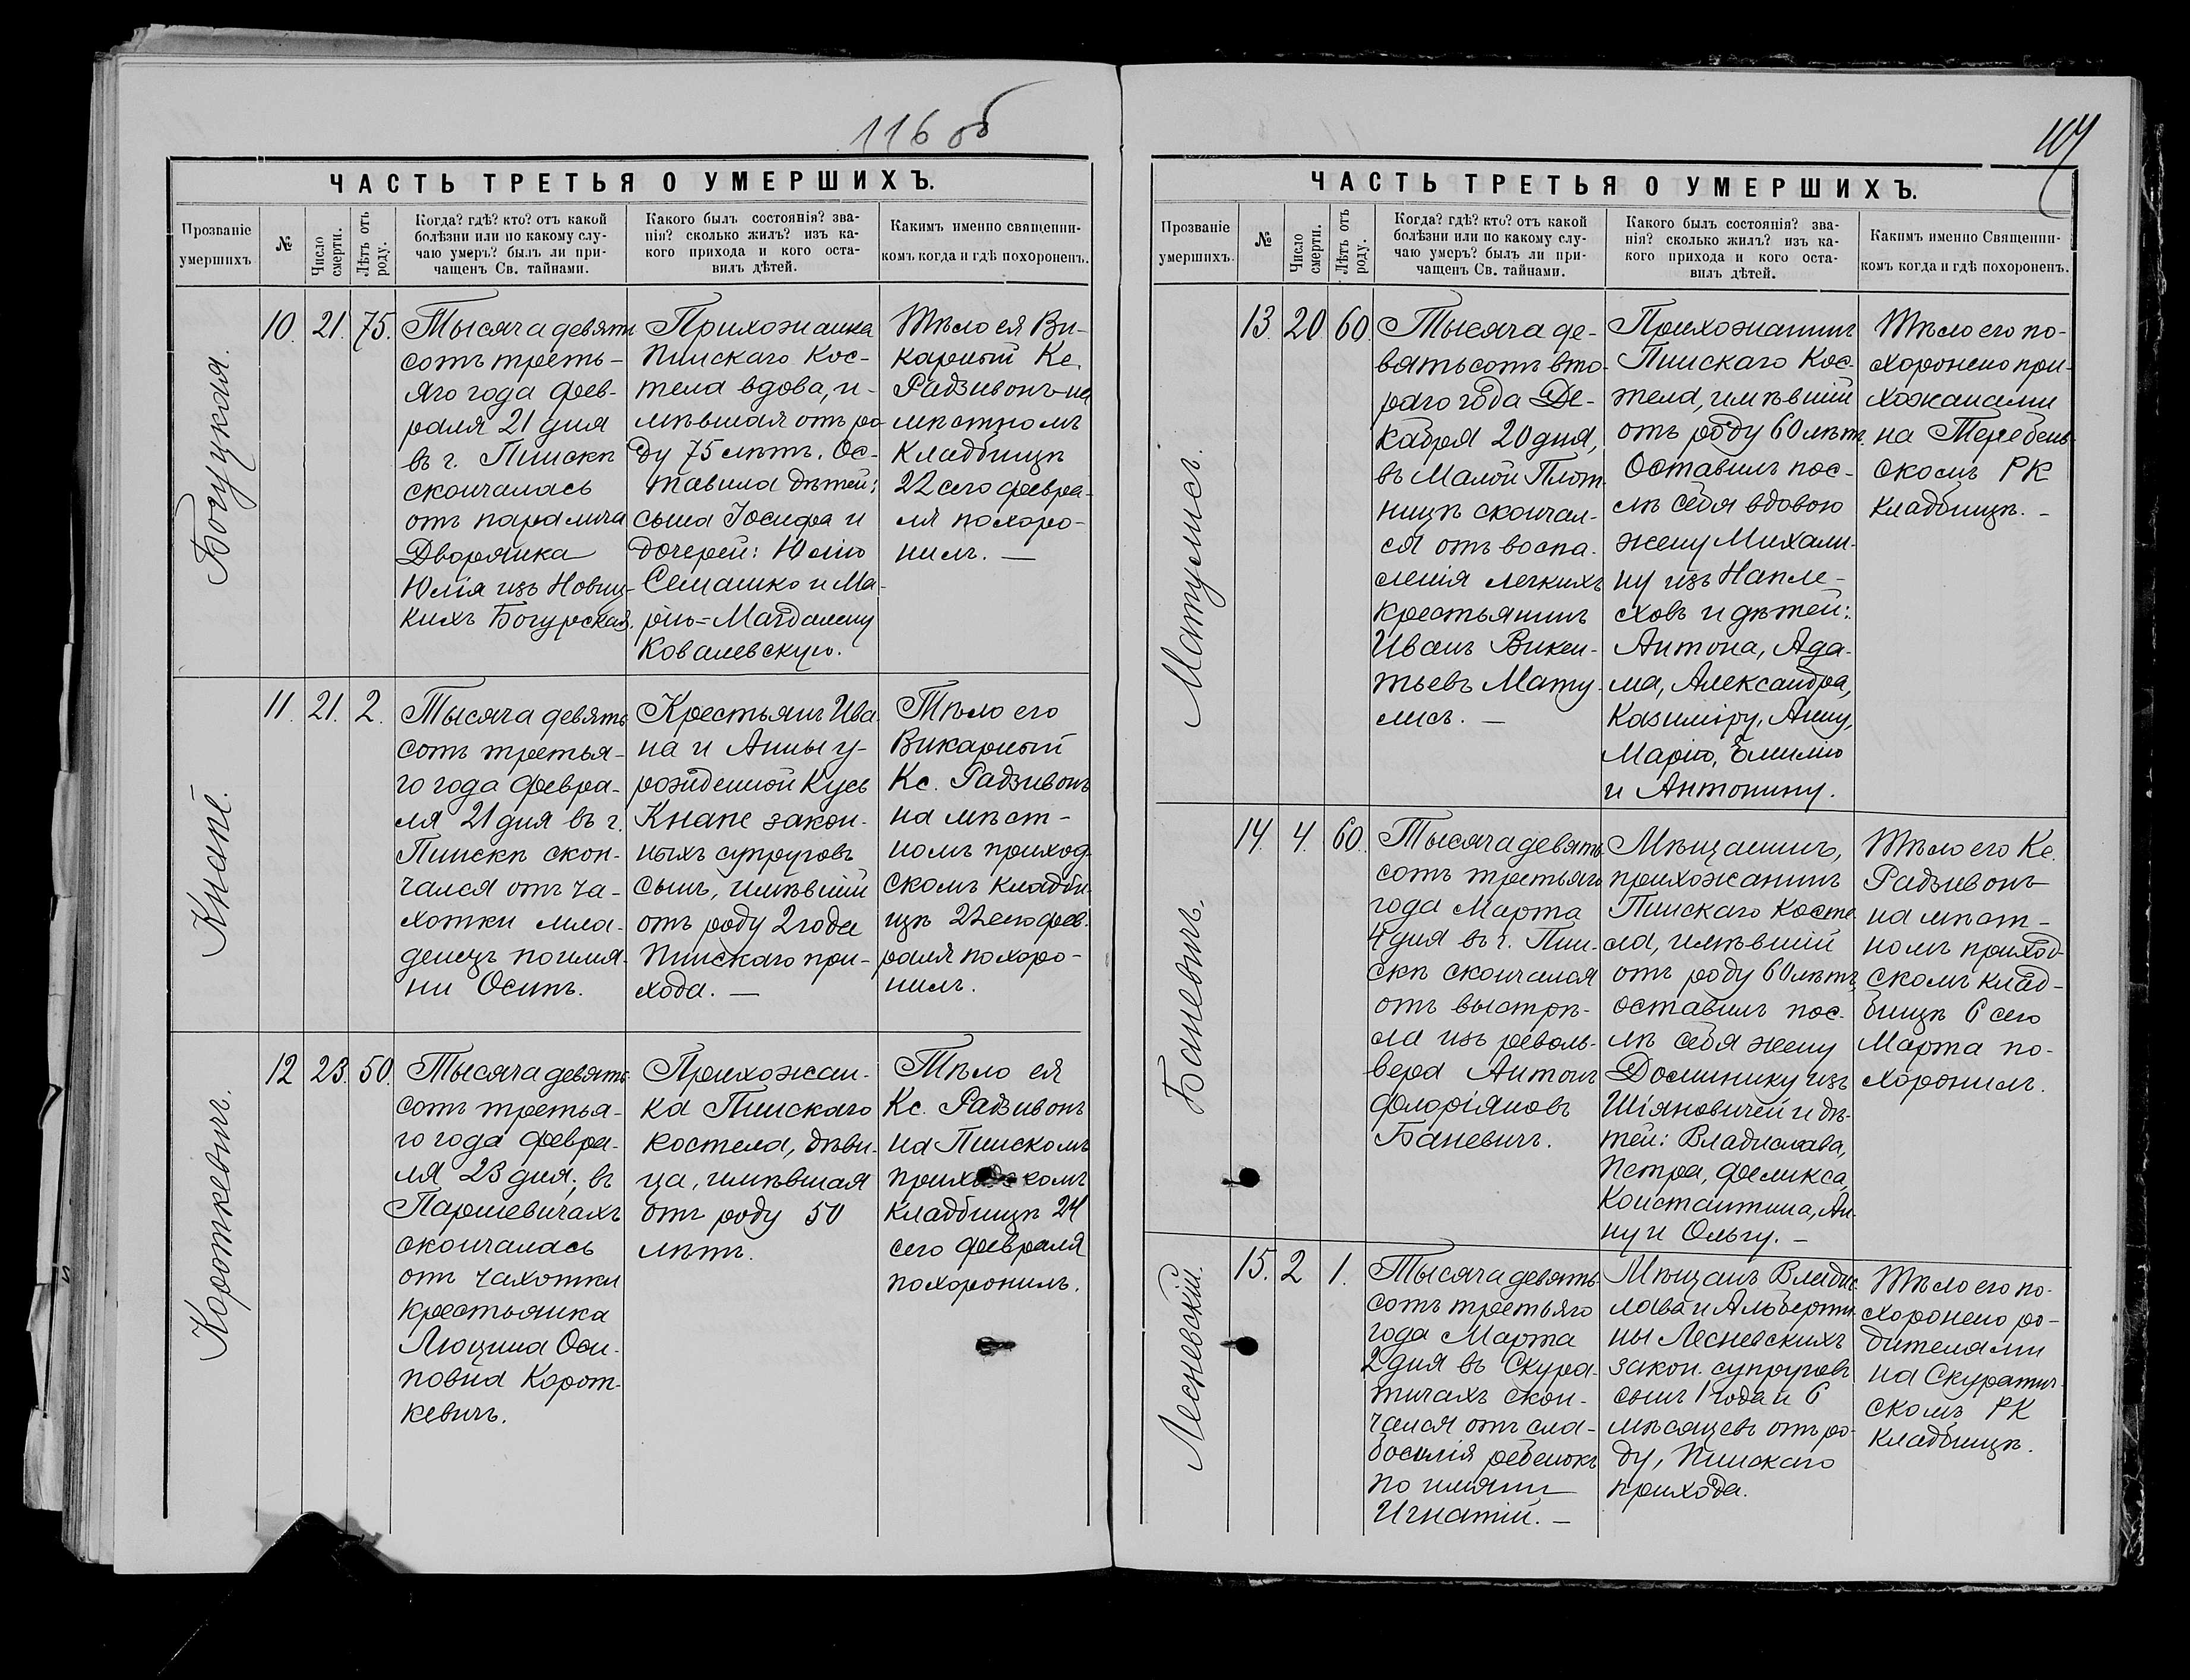 116 об
ЧАСТЬ ТРЕТЬЯ О УМЕРШИХЪ.
Прозваніе
умершихъ
№
Число
смерти.
Лѣтъ отъ
роду.
Когда? гдѣ? кто? отъ какой
болѣзни или по какому слу-
чаю умеръ? былъ ли при-
чащенъ Св. тайнами.
Какого былъ состоянія? зва-
нія? сколько жилъ? изъ ка-
кого прихода и кого оста-
вилъ дѣтей.
Какимъ именно священни-
комъ когда и гдѣ похороненъ.
Богуцкая.
10.
21.
75.
Тысяча девять
сотъ треть-
яго года фев-
раля 21 дня
въ г. Пинскѣ
скончалась
отъ паралича
Дворянка
Юлія изъ Новиц-
кихъ Богурская.
Прихожанка
Пинскаго Кос-
тела вдова, и-
мѣвшая отъ ро-
ду 75 лѣтъ. Ос-
тавила дѣтей:
сына Іосифа и
дочерей: Юлію
Семашко и Ма-
рію-Магдалену
Ковалевскую.
Тѣло ея Ви-
карный Кс.
Радзивонъ на
мѣстномъ
Кладбищѣ
22 сего февра-
ля похоро-
нилъ. —
Кнапе.
11.
21.
2.
Тысяча девять
сотъ третья-
го года февра-
ля 21 дня въ г.
Пинскѣ скон-
чался отъ ча-
хотки мла-
денецъ по имя-
ни Осипъ.
Крестьянъ Ива-
на и Анны у-
рожденной Кусь
Кнапе закон-
ныхъ супруговъ
сынъ, имѣвшій
отъ роду 2 года
Пинскаго при-
хода. —
Тѣло его
Викарный
Кс. Радзивонъ
на мѣст-
номъ приход-
скомъ кладби-
щѣ 22 сего фев-
раля похоро-
нилъ.
Короткевичъ.
12
23.
50.
Тысяча девять
сотъ третья-
го года февра-
ля 23 дня, въ
Паршевичахъ
скончалась
отъ чахотки
крестьянка
Люцина Оси-
повна Корот-
кевичъ.
Прихожан-
ка Пинскаго
костела, дѣви-
ца, имѣвшая
отъ роду 50
лѣтъ.
Тѣло ея
Кс. Радзивонъ
на Пинскомъ
приходскомъ
кладбищѣ 24
сего февраля
похоронилъ.
ЧАСТЬ ТРЕТЬЯ О УМЕРШИХЪ.
Прозваніе
умершихъ.
№
Число
смерти.
Лѣтъ отъ
роду.
Когда? гдѣ? кто? отъ какой
болѣзни или по какому слу-
чаю умеръ? былъ ли при-
чащенъ Св. тайнами.
Какого былъ состоянія? зва-
нія? сколько жилъ? изъ ка-
кого прихода и кого оста-
вилъ дѣтей.
Какимъ именно Священни-
комъ когда и гдѣ похороненъ.
Матулисъ.
13.
20
60.
Тысяча де-
вятьсотъ вто-
раго года Де-
кабря 20 дня,
въ Малой Плот-
ницѣ скончал-
ся отъ воспа-
ленія легкихъ
крестьянинъ
Иванъ Викен-
тьевъ Мату-
лисъ. —
Прихожанинъ
Пинскаго Кос-
тела, имѣвшій
отъ роду 60 лѣтъ.
Оставилъ пос-
лѣ себя вдовою
жену Михали-
ну изъ Напле-
ховъ и дѣтей:
Антона, Ада-
ма, Александра,
Казиміру, Анну,
Марію, Емилію
и Антонину.
Тѣло его по-
хоронено при-
хожанами
на Теребень-
скомъ РК
кладбищѣ. —
Баневичъ.
14.
4.
60.
Тысяча девять
сотъ третьяго
года Марта
4 дня въ г. Пин-
скѣ скончался
отъ выстрѣ-
ла изъ револь-
вера Антонъ
Флоріяновъ
Баневичъ.
Мѣщанинъ,
прихожанинъ
Пинскаго косте-
ла, имѣвшій
отъ роду 60 лѣтъ,
оставилъ пос-
лѣ себя жену
Доминику изъ
Шіяновичей и дѣ-
тей: Владислава,
Петра, Феликса,
Константина, Ан-
ну и Ольгу. —
Тѣло его Кс.
Радзивонъ
на мѣст-
номъ приход-
скомъ клад-
бищѣ 6 сего
Марта по-
хоронилъ.
Лесневскій.
15.
2
1.
Тысяча девять
сотъ третьяго
года Марта
2 дня въ Скура-
тичахъ скон-
чался отъ сла-
босилія ребенокъ
по имяни
Игнатій. —
Мѣщанъ Владис-
лава и Альберти-
ны Лесневскихъ
закон. супруговъ
сынъ 1 года и 6
мѣсяцевъ отъ ро-
ду, Пинскаго
прихода.
Тѣло его по-
хоронено ро-
дителями
на Скуратич-
скомъ РК
кладбищѣ.